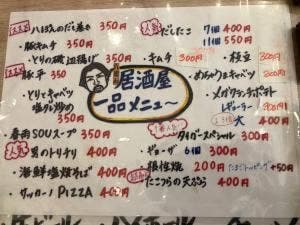 おすすめ
八ぼんのだし巻き 350円
・豚キムチ 350円
・とりの磯辺揚げ 350円
おすすめ
豚平 350円
・とりとキャベツ
塩ダレ炒め
350円
・春雨SOUスープ 350円
人気
男のトリチリ 400円
・海鮮塩焼そば 400円
・サッカーノPIZZA 400円
居酒屋
一品メニュー
人気
だしたこ 7個 400円
11個 550円
・キムチ 300円
・枝豆 300円
・めちゃうまキャベツ 200円
・メガフライドポテト
レギュラー 300円
1.5倍 大 400円
1番人気!
タイガースペシャル 300円
・ギョーザ 6個 300円
・根性焼 200円 たまごトッピング +50円
・たこつらの天ぷら 400円